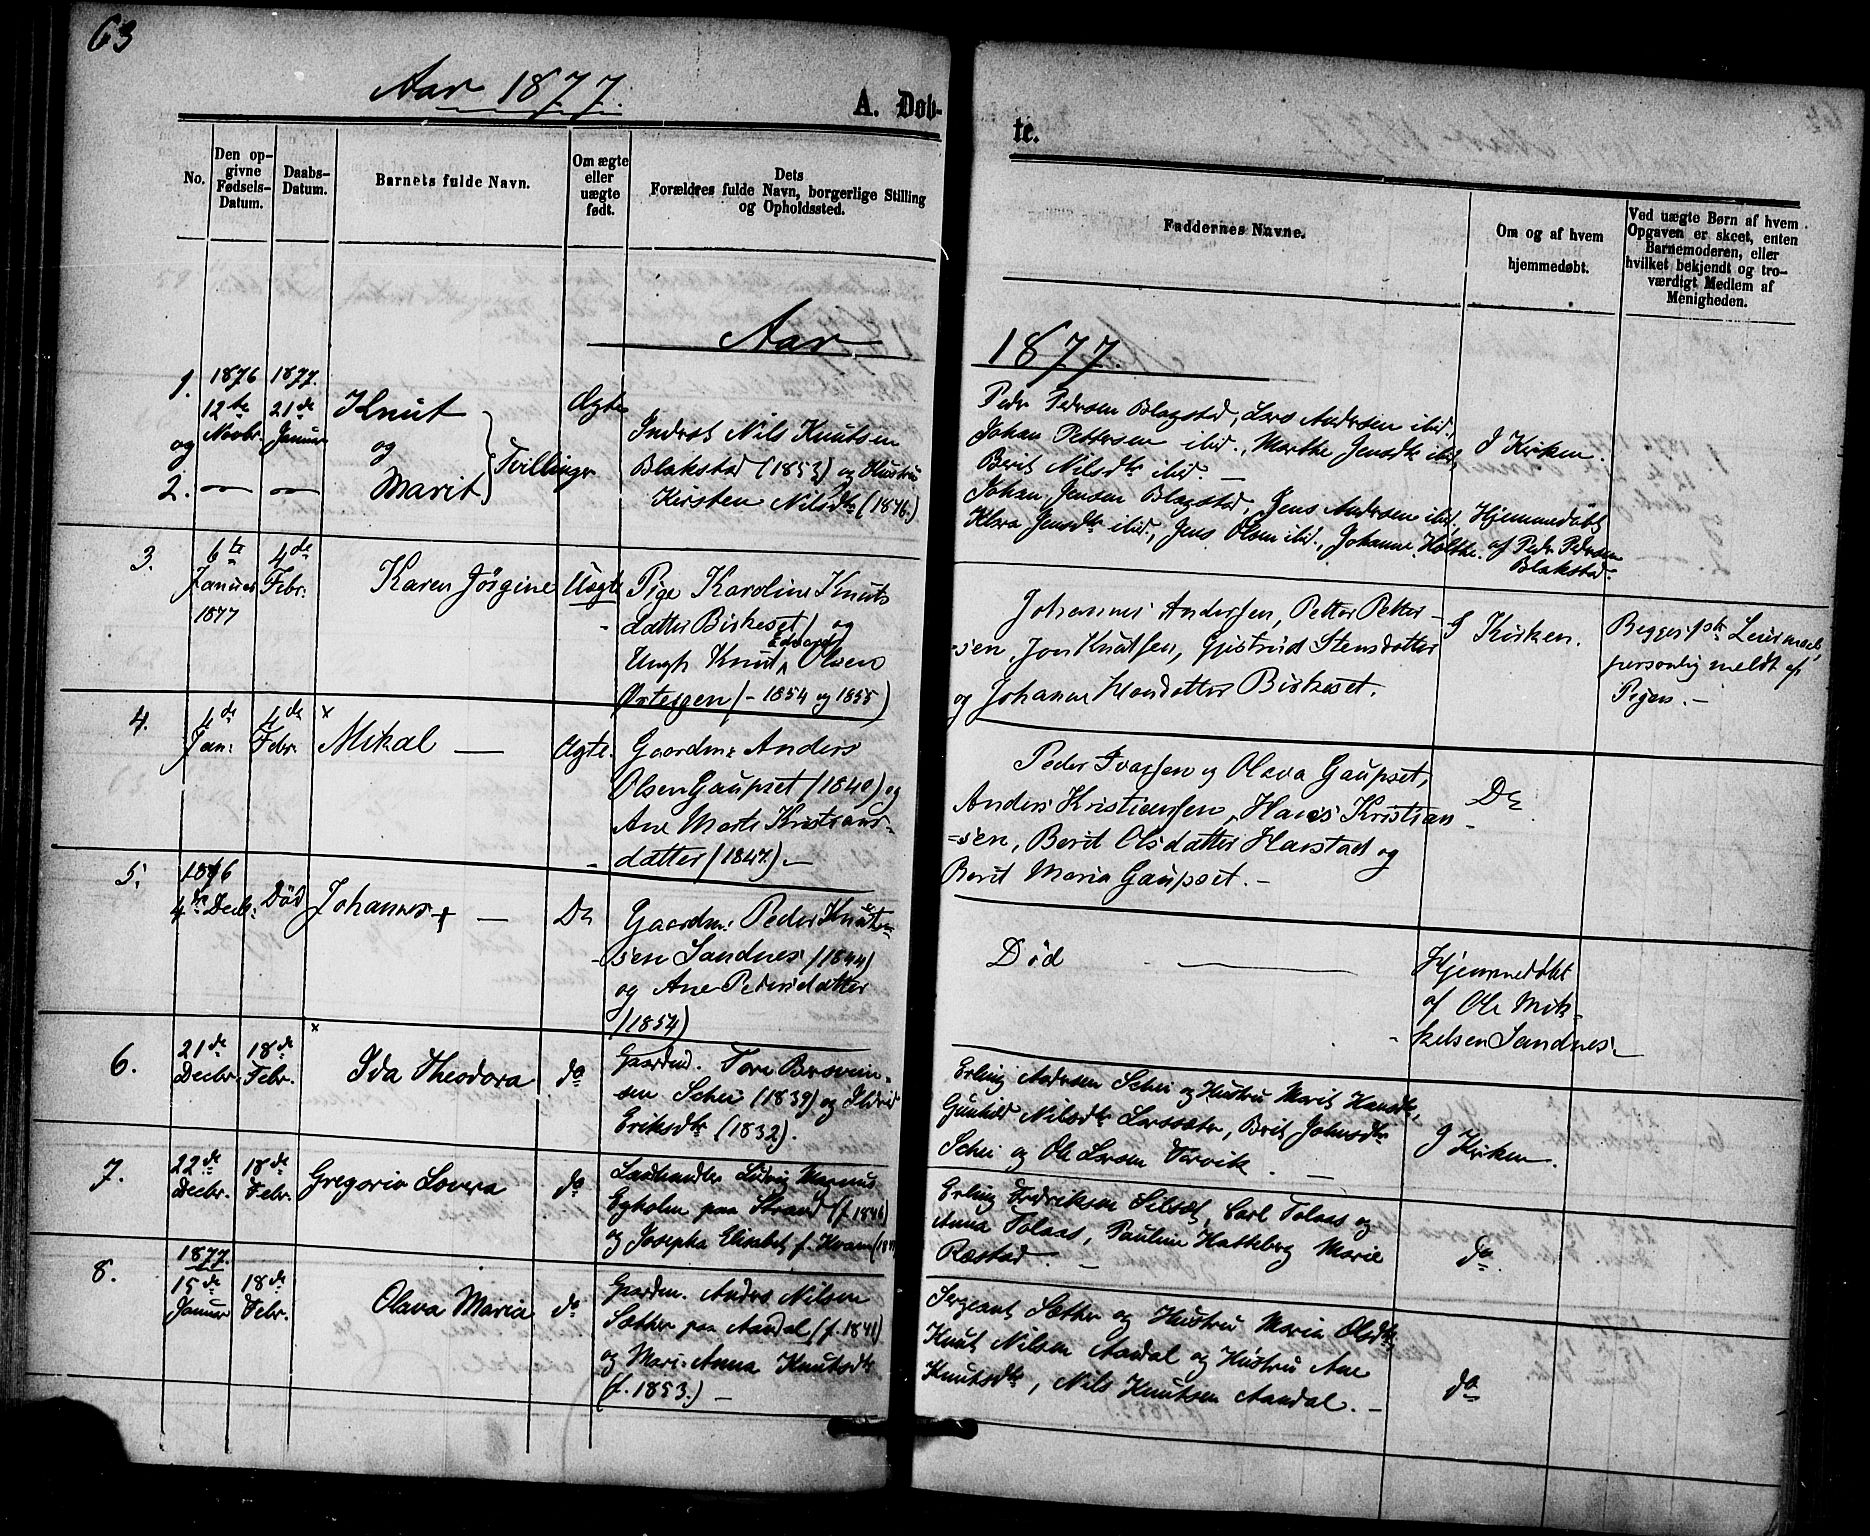 63
Aar 1877.
A. Døb-
te.
No.
Den op-
givne
Fødsels-
Datum.
Daabs-
Datum.
Barnets fulde Navn.
Om ægte
eller
uægte
født.
Dets
Forældres fulde Navn, borgerlige Stilling
og Opholdssted.
Faddernes Navne.
Om og af hvem
hjemmedøbt.
Ved uægte Børn af hvem
Opgaven er skeet, enten
Barnemoderen, eller
hvilket bekjendt og tro-
værdigt Medlem af
Menigheden.
Aar 1877.
1.
og
2.
1876
12te
Novbr.
1877.
21de
Januar
Knut
og
Marit
Tvillinger
Ægte
Inderst Nils Knutsen
Blakstad (1853) og Hustru
Kirsten Nilsdtr (1846.)
Peder Pedersen Blagstad, Lars Andersen ibid.,
Johan Pettersen ibid., Marthe Jensdtr ibid,
Berit Nilsdtr ibid. -
Johan Jensen Blagstad, Jens Andersen ibid.,
Klara Jensdtr ibid., Jens Olsen ibid., Johanne Holthe.
I Kirken.
Hjemmedøbt
af Peder Pedersen
Blakstad.
3.
6te
Januar
1877
4de
Febr.
Karen Jørgine
Uægte
Pige Karoline Knuts
datter Birkeset) og
Ungk. Knut Edvard Olsen
(- 1854 og 1855)
Johannes Anderssen, Petter Petter-
-sen, Jon Knutssen, Gjertrud Stensdatter
og Johanne Birkeset.
I Kirken.
Begges 1ste Leiermaal,
personlig meldt af
Pigen. -
4.
4de
Jan:
4de
Febr.
x
Mikal —
Ægte.
Gaardm: Anders
Olsen Gaupset (1840) og
Ane Marte Kristians-
datter (1847.) -
Peder Ivarssen og Olava Gaupset,
Anders Kristianssen, Hans Kristian-
=sen, Berit Olsdatter Harstad og
Berit Maria Gaupset. -
Do
5.
1876
4de Decbr:
Død
Johannes + —
Do
Gaardm: Peder Knut-
-sen Sandnes (1844)
og Ane Pedersdatter
(1854)
Død —
Hjemmedøbt
af Ole Mik-
kelsen Sandnes.
6.
21de
Decbr.
18de
Febr.
x
Ida Theodora
do
Gaardm. Tore
sen Schei (1839) og Ildrid
Eriksdtr (1832).
Erling Andersen Schei og Hustru Marit Hansdtr,
Gunhild Nilsdtr Larssæter, Brit Johnsdtr
Schei og Ole Larsen Vorvik.
I Kirken.
7.
22de
Decbr.
18de
Febr.
Gregoria Lovera
do
Landhandler Ludvig Magnus
Egholm paa Strand (f. 1846)
og Josepha Elisabet f. Kvam
Erling Fredriksen Silset, Carl Tolaas og
Anna Tolaas, Pauline Hatteberg Marie
Røstad. -
do.
8.
1877.
15de
Januar
18de
Febr.
Olava Maria
do
Gaardm. Anders Nilsen
Sæther paa Aandal (f. 1841)
og Mari-Anna Knutsdtr
(f. 1853.) -
Sergeant Sæther og Hustru Maria Olsdtr,
Knut Nilsen Aandal og Hustru Ane
Knutsdtr, Nils Knutsen Aandal. -
do